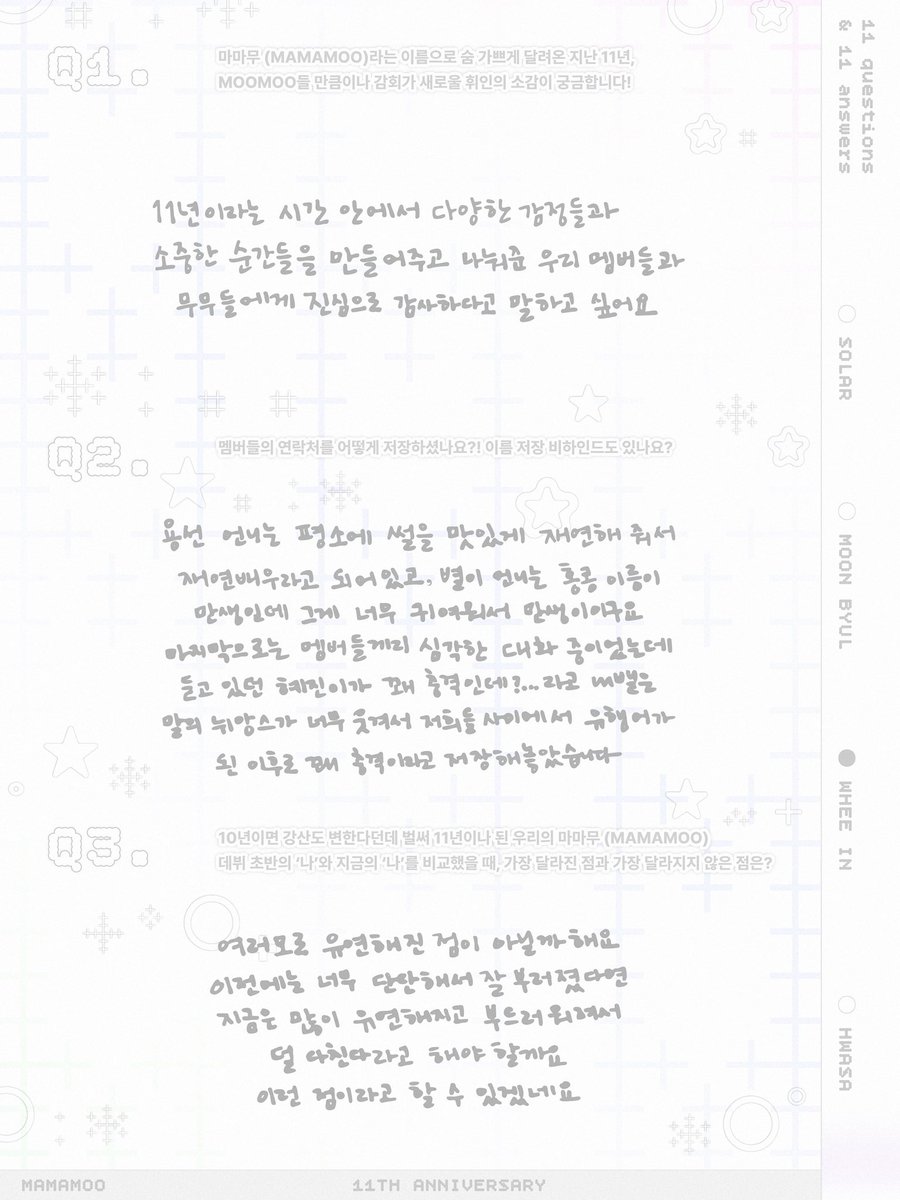 Q1.
마마무 (MAMAMOO)라는 이름으로 숨 가쁘게 달려온 지난 11년,
MOOMOO들 만큼이나 감회가 새로울 휘인의 소감이 궁금합니다!
11년이라는 시간 안에서 다양한 감정들과
소중한 순간들을 만들어주고 나눠준 우리 멤버들과
무무들에게 진심으로 감사하다고 말하고 싶어요
Q2.
멤버들의 연락처를 어떻게 저장하셨나요?! 이름 저장 비하인드도 있나요?
용선 언니는 평소에 썰을 맛있게 재연해 줘서
재연배우라고 되어있고, 별이 언니는 홍콩 이름이
만생인데 그게 너무 귀여워서 만생이이구요
마지막으로는 멤버들끼리 심각한 대화 중이었는데
듣고 있던 혜진이가 꽤 충격인데?...라고 뱉은
말의 뉘앙스가 너무 웃겨서 저희들 사이에서 유행어가
된 이후로 꽤 충격이라고 저장해놓았습니다
Q3.
10년이면 강산도 변한다던데 벌써 11년이나 된 우리의 마마무 (MAMAMOO)
데뷔 초반의 '나'와 지금의 '나'를 비교했을 때, 가장 달라진 점과 가장 달라지지 않은 점은?
여러모로 유연해진 점이 아닐까 해요
이전에는 너무 단단해서 잘 부러졌다면
지금은 많이 유연해지고 부드러워져서
덜 다친다라고 해야 할까요
이런 점이라고 할 수 있겠네요
11 questions
& 11 answers
SOLAR
MOON BYUL
WHEE IN
HWASA
MAMAMOO
11TH ANNIVERSARY